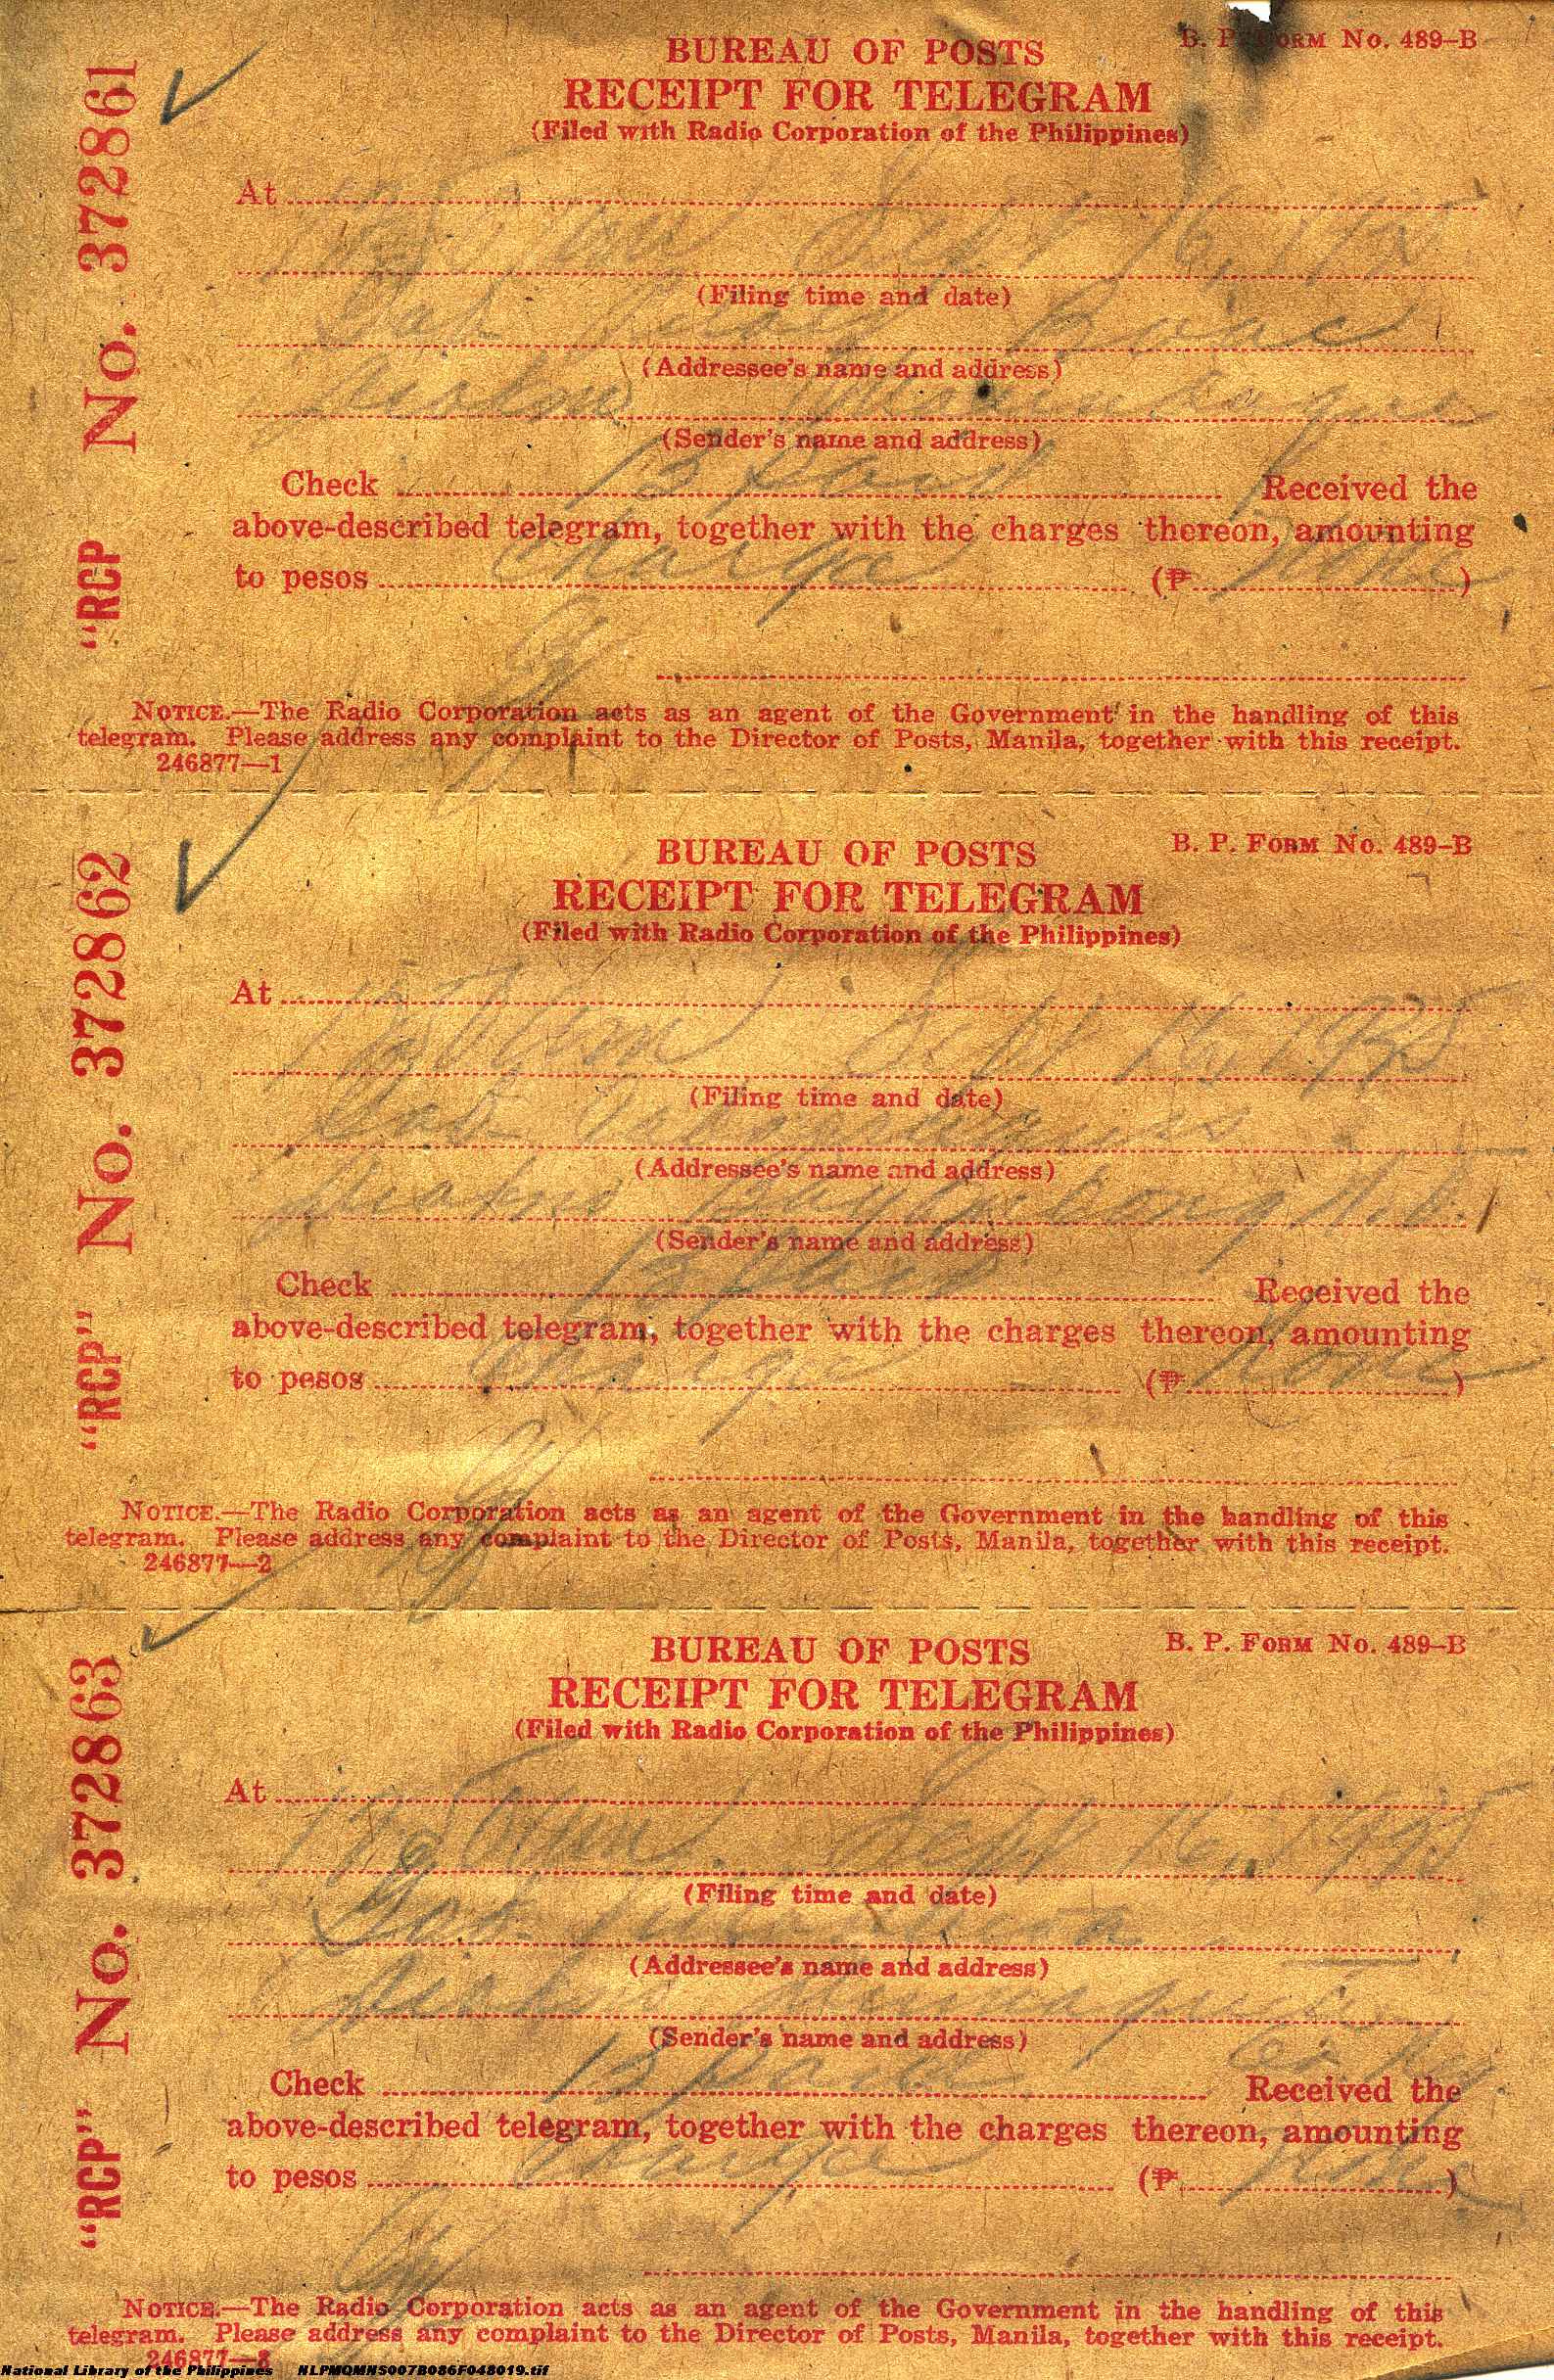 B. P. FORM No. 489–B
BUREAU OF POSTS
RECEIPT FOR TELEGRAM
(Filed with Radio Corporation of the Philippines)
"RCP No. 372861
At
Sept 16, 1935
(Filing time and date)
Boac
(Addressee's name and address)
Marinduque
(Sender's name and address)
Check 13 paid Received the
above-described telegram, together with the charges thereon, amounting
to pesos Charge (₱ None )
NOTICE.—The Radio Corporation acts as an agent of the Government in the handling of this
telegram. Please address any complaint to the Director of Posts, Manila, together with this receipt.
246877—1
B. P. FORM No. 489–B
BUREAU OF POSTS
RECEIPT FOR TELEGRAM
(Filed with Radio Corporation of the Philippines)
"RCP" No. 372862
At
Sept 16, 1935
(Filing time and date)
(Addressee's name and address)
(Sender's name and address)
Check 13 Received the
above-described telegram, together with the charges thereon, amounting
to pesos Charge (₱ None )
NOTICE.—The Radio Corporation acts as an agent of the Government in the handling of this
telegram. Please address any complaint to the Director of Posts, Manila, together with this receipt.
246877—2
B. P. FORM No. 489–B
BUREAU OF POSTS
RECEIPT FOR TELEGRAM
(Filed with Radio Corporation of the Philippines)
"RCP" No. 372863
At
Sept 16, 1935
(Filing time and date)
(Addressee's name and address)
(Sender's name and address)
Check 13 paid Received the
above-described telegram, together with the charges thereon, amounting
to pesos Charge (₱ None )
NOTICE.—The Radio Corporation acts as an agent of the Government in the handling of this
telegram. Please address any complaint to the Director of Posts, Manila, together with this receipt.
246877—3
National Library of the Philippines NLPMQMNS007B086F048019.tif